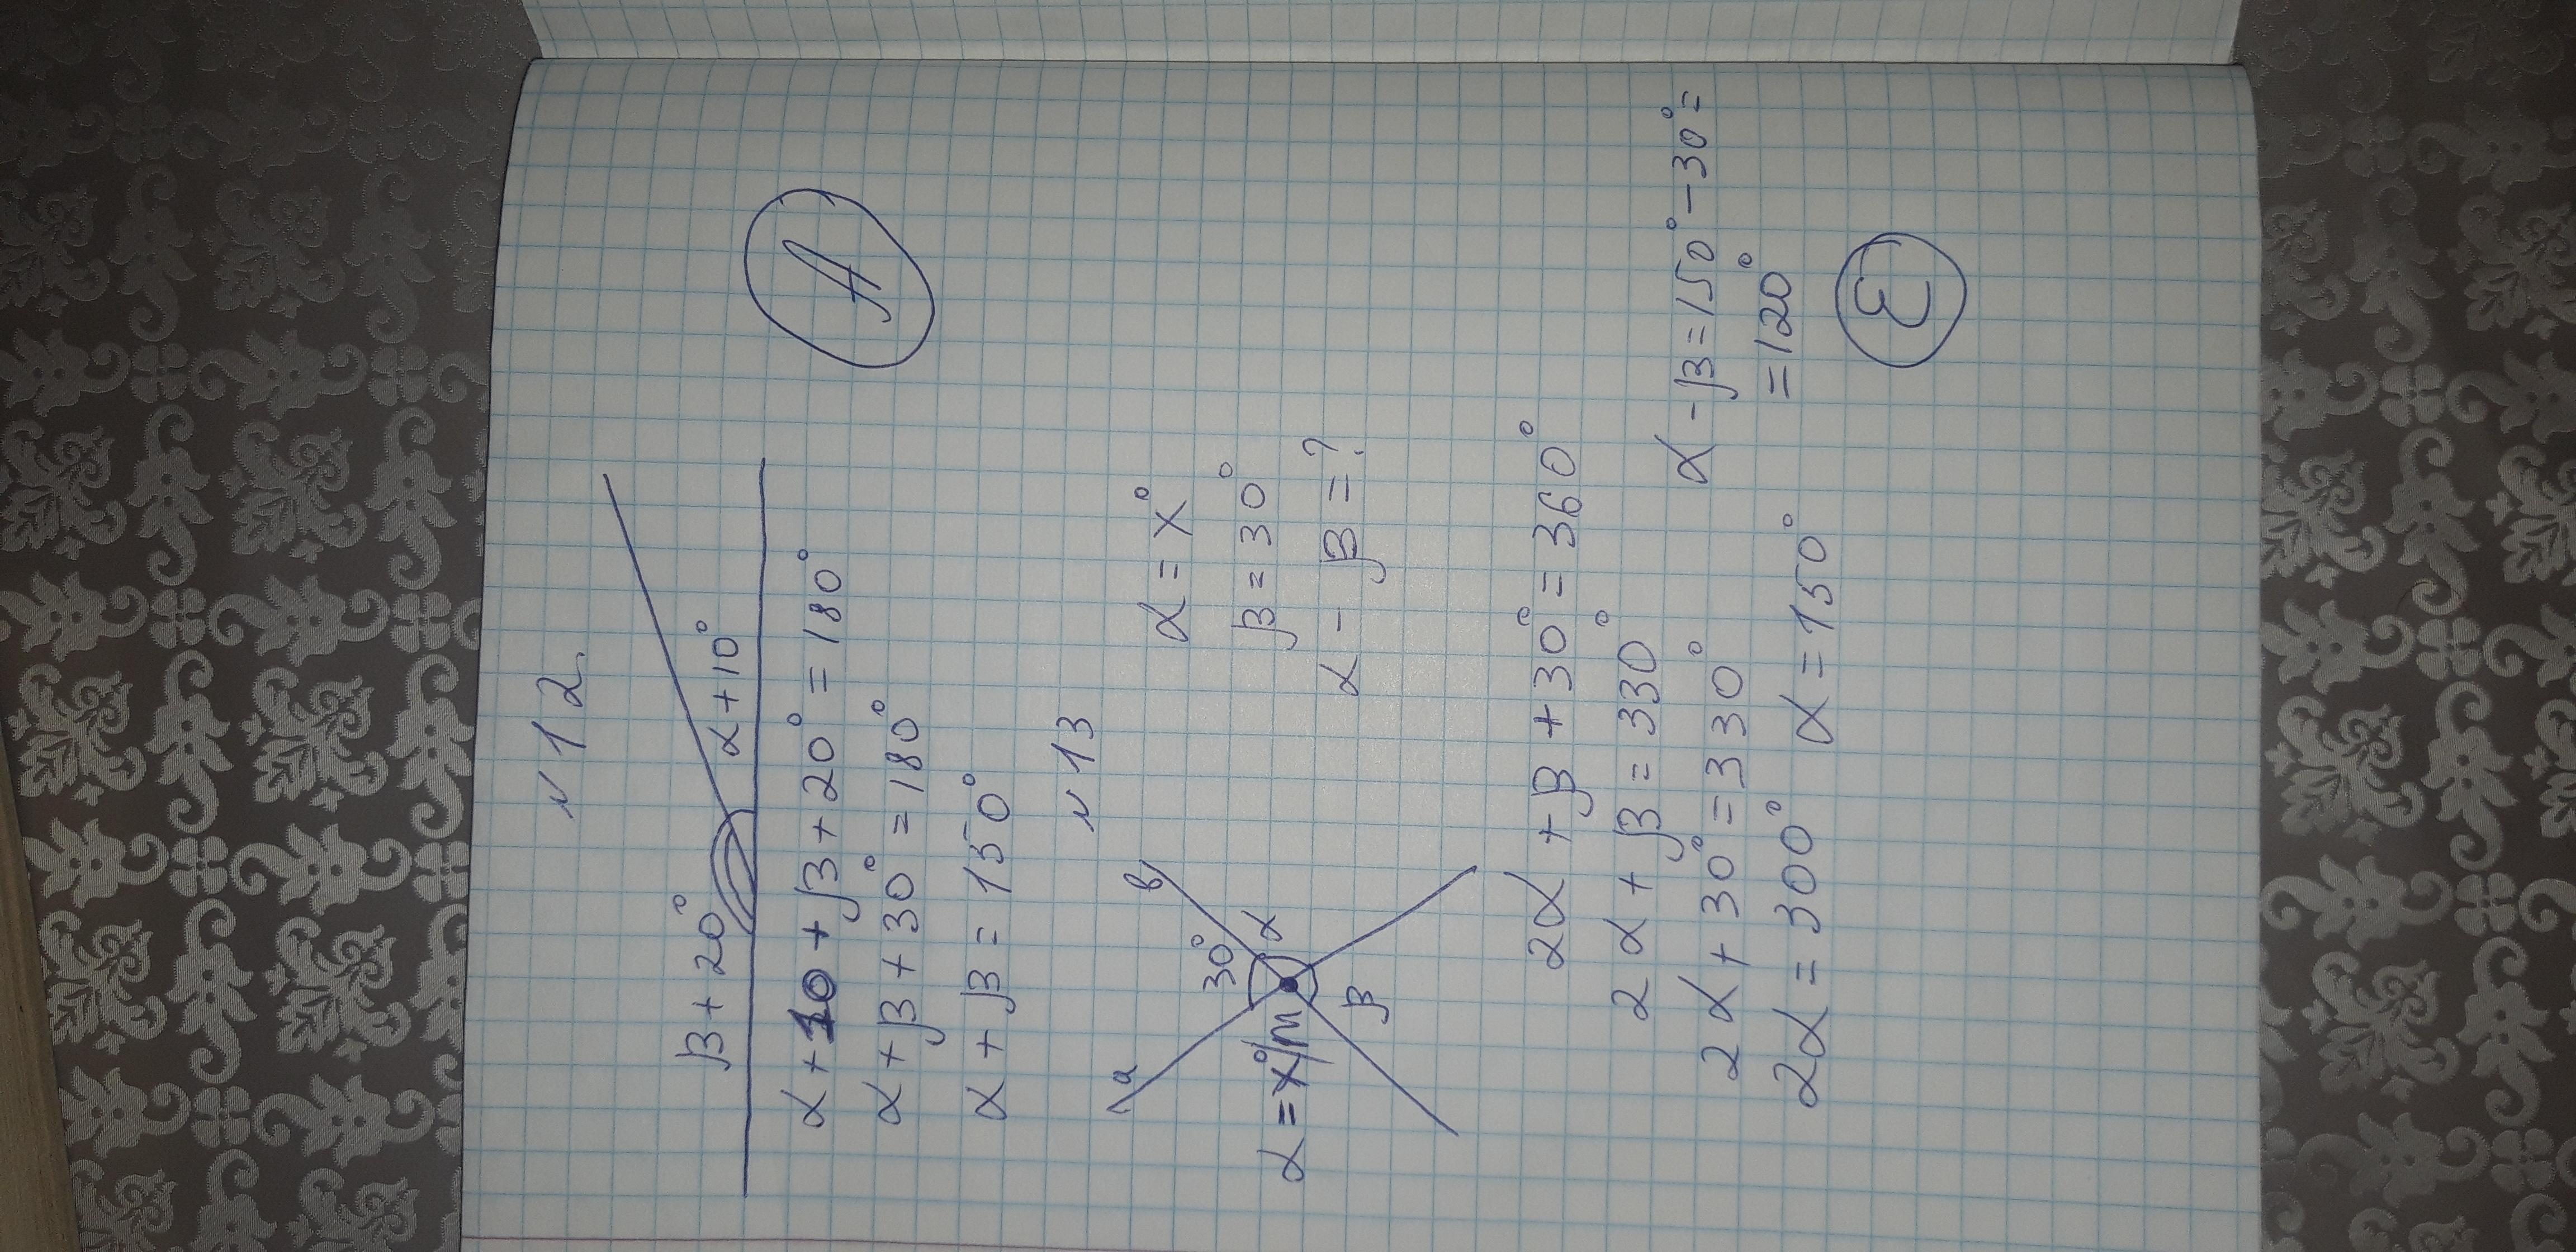 № 12.
β + 20° α + 10°
α + 10 + β + 20° = 180°
α + β + 30° = 180°
α + β = 150°
A
№ 13
a b
30°
α = x° m α
β
α = x°
β = 30°
α - β = ?
2α + β + 30° = 360°
2α + β = 330°
2α + 30° = 330°
2α = 300° α = 150°
α - β = 150° - 30° =
= 120°
З